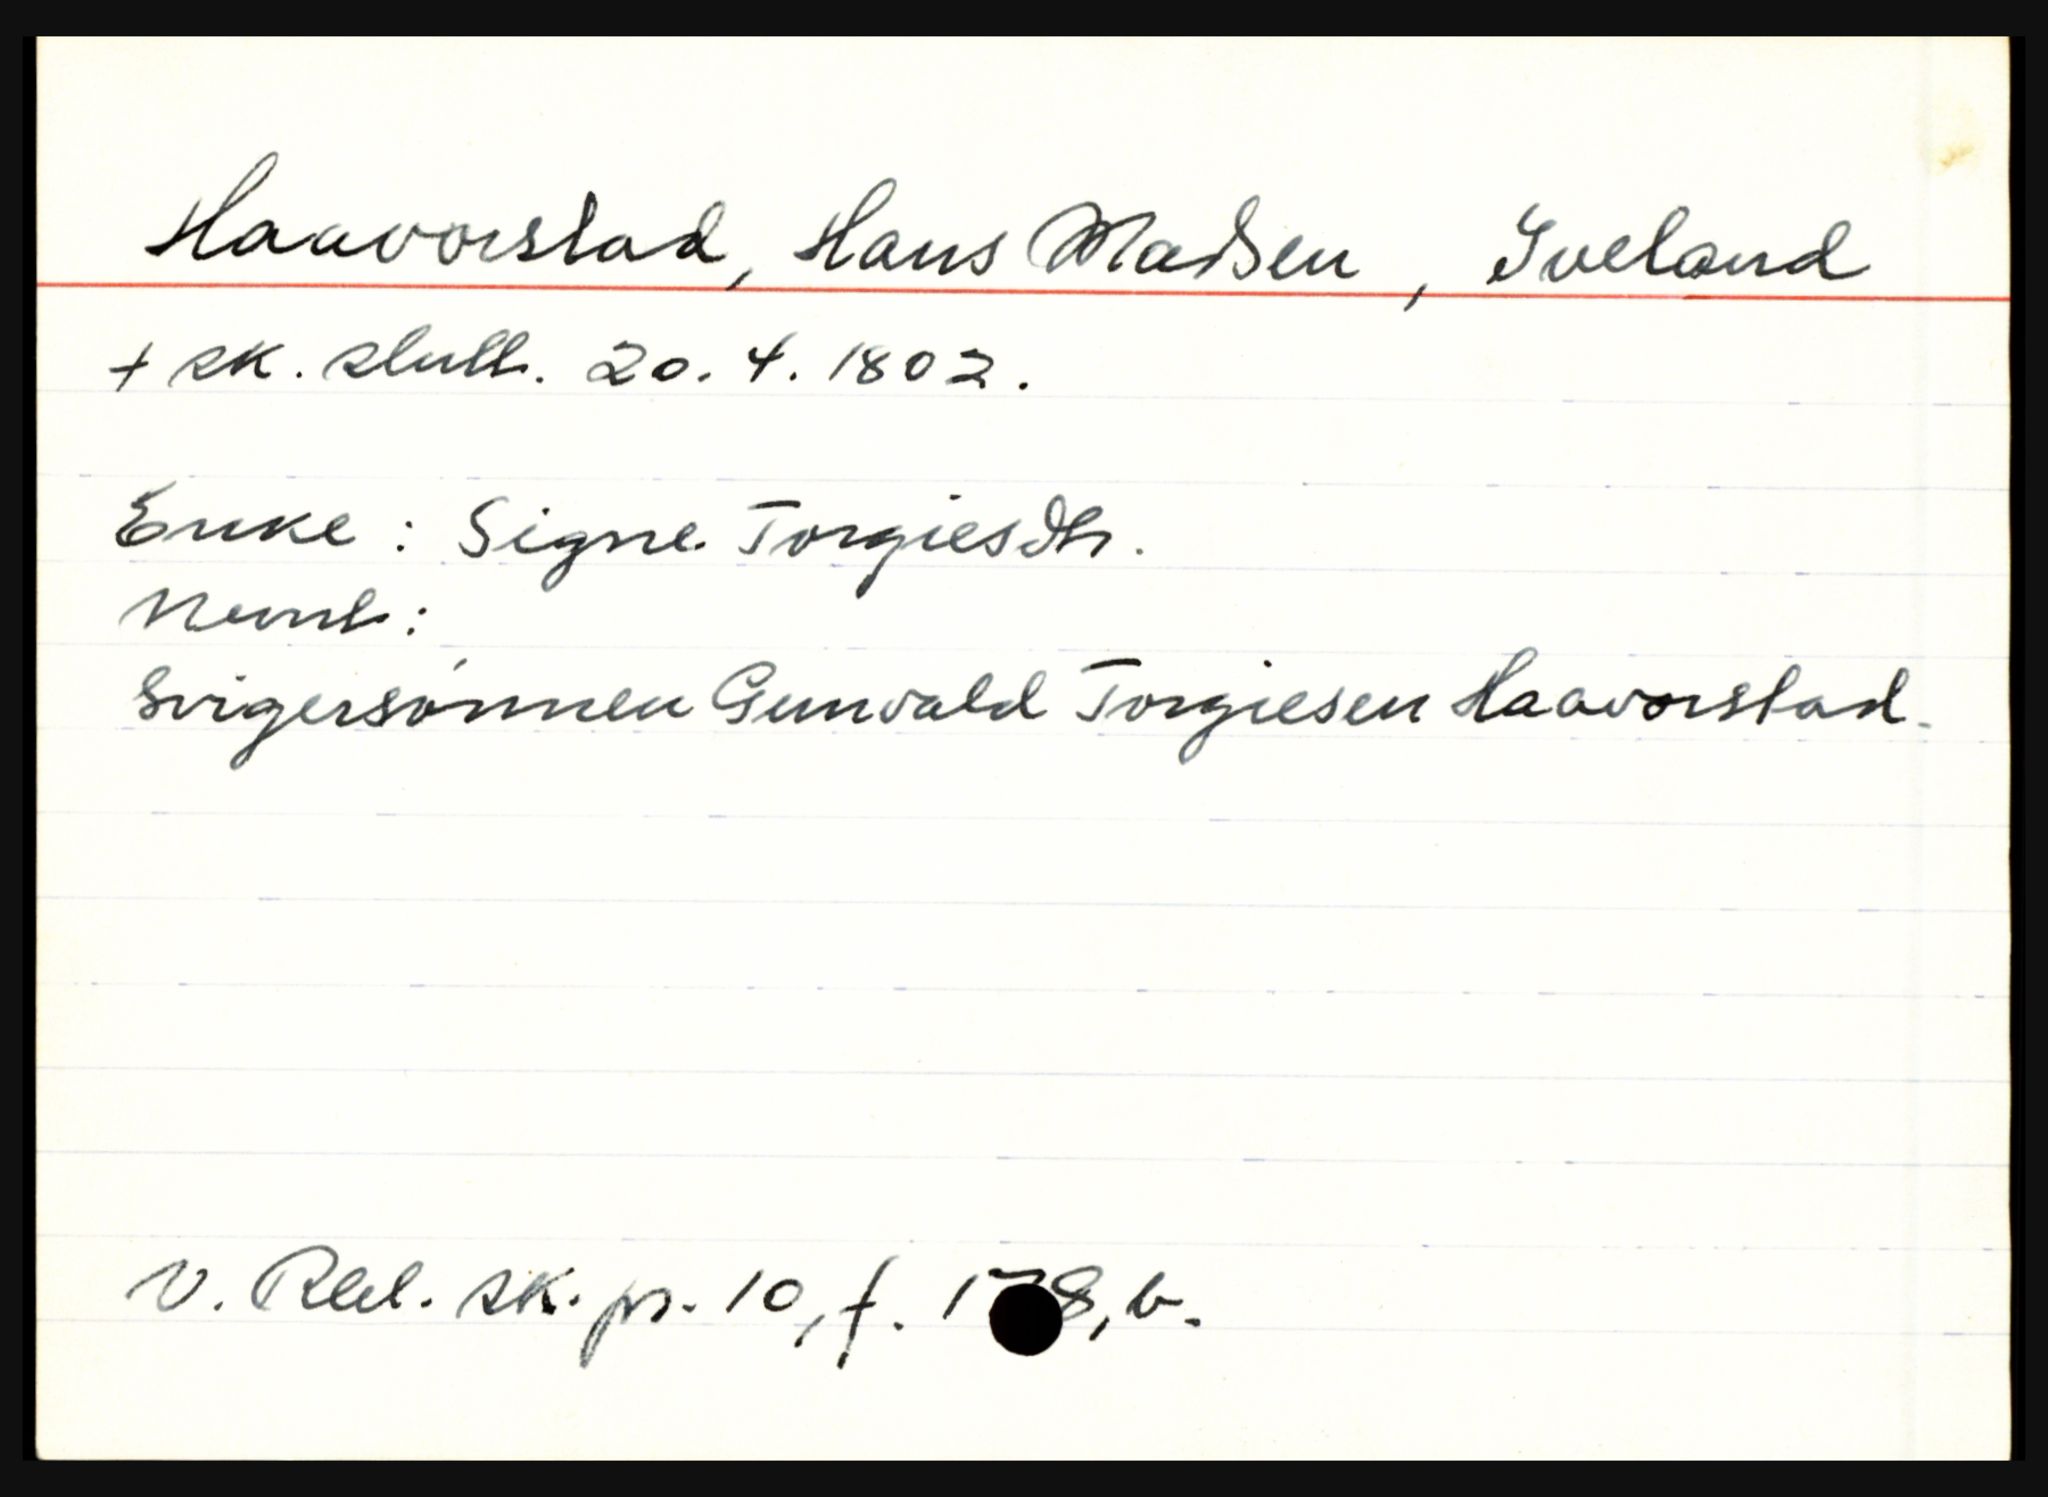 Haavorstad, Hans Madsen, Iveland
+ sk. slutt. 20. 4. 1802.
Enke: Signe Torgiesdtr.
Nevnt:
Svigersønnen Gunvald Torgiesen Haavorstad.
V. Rbd. sk. pr. 10, f. 178, b.